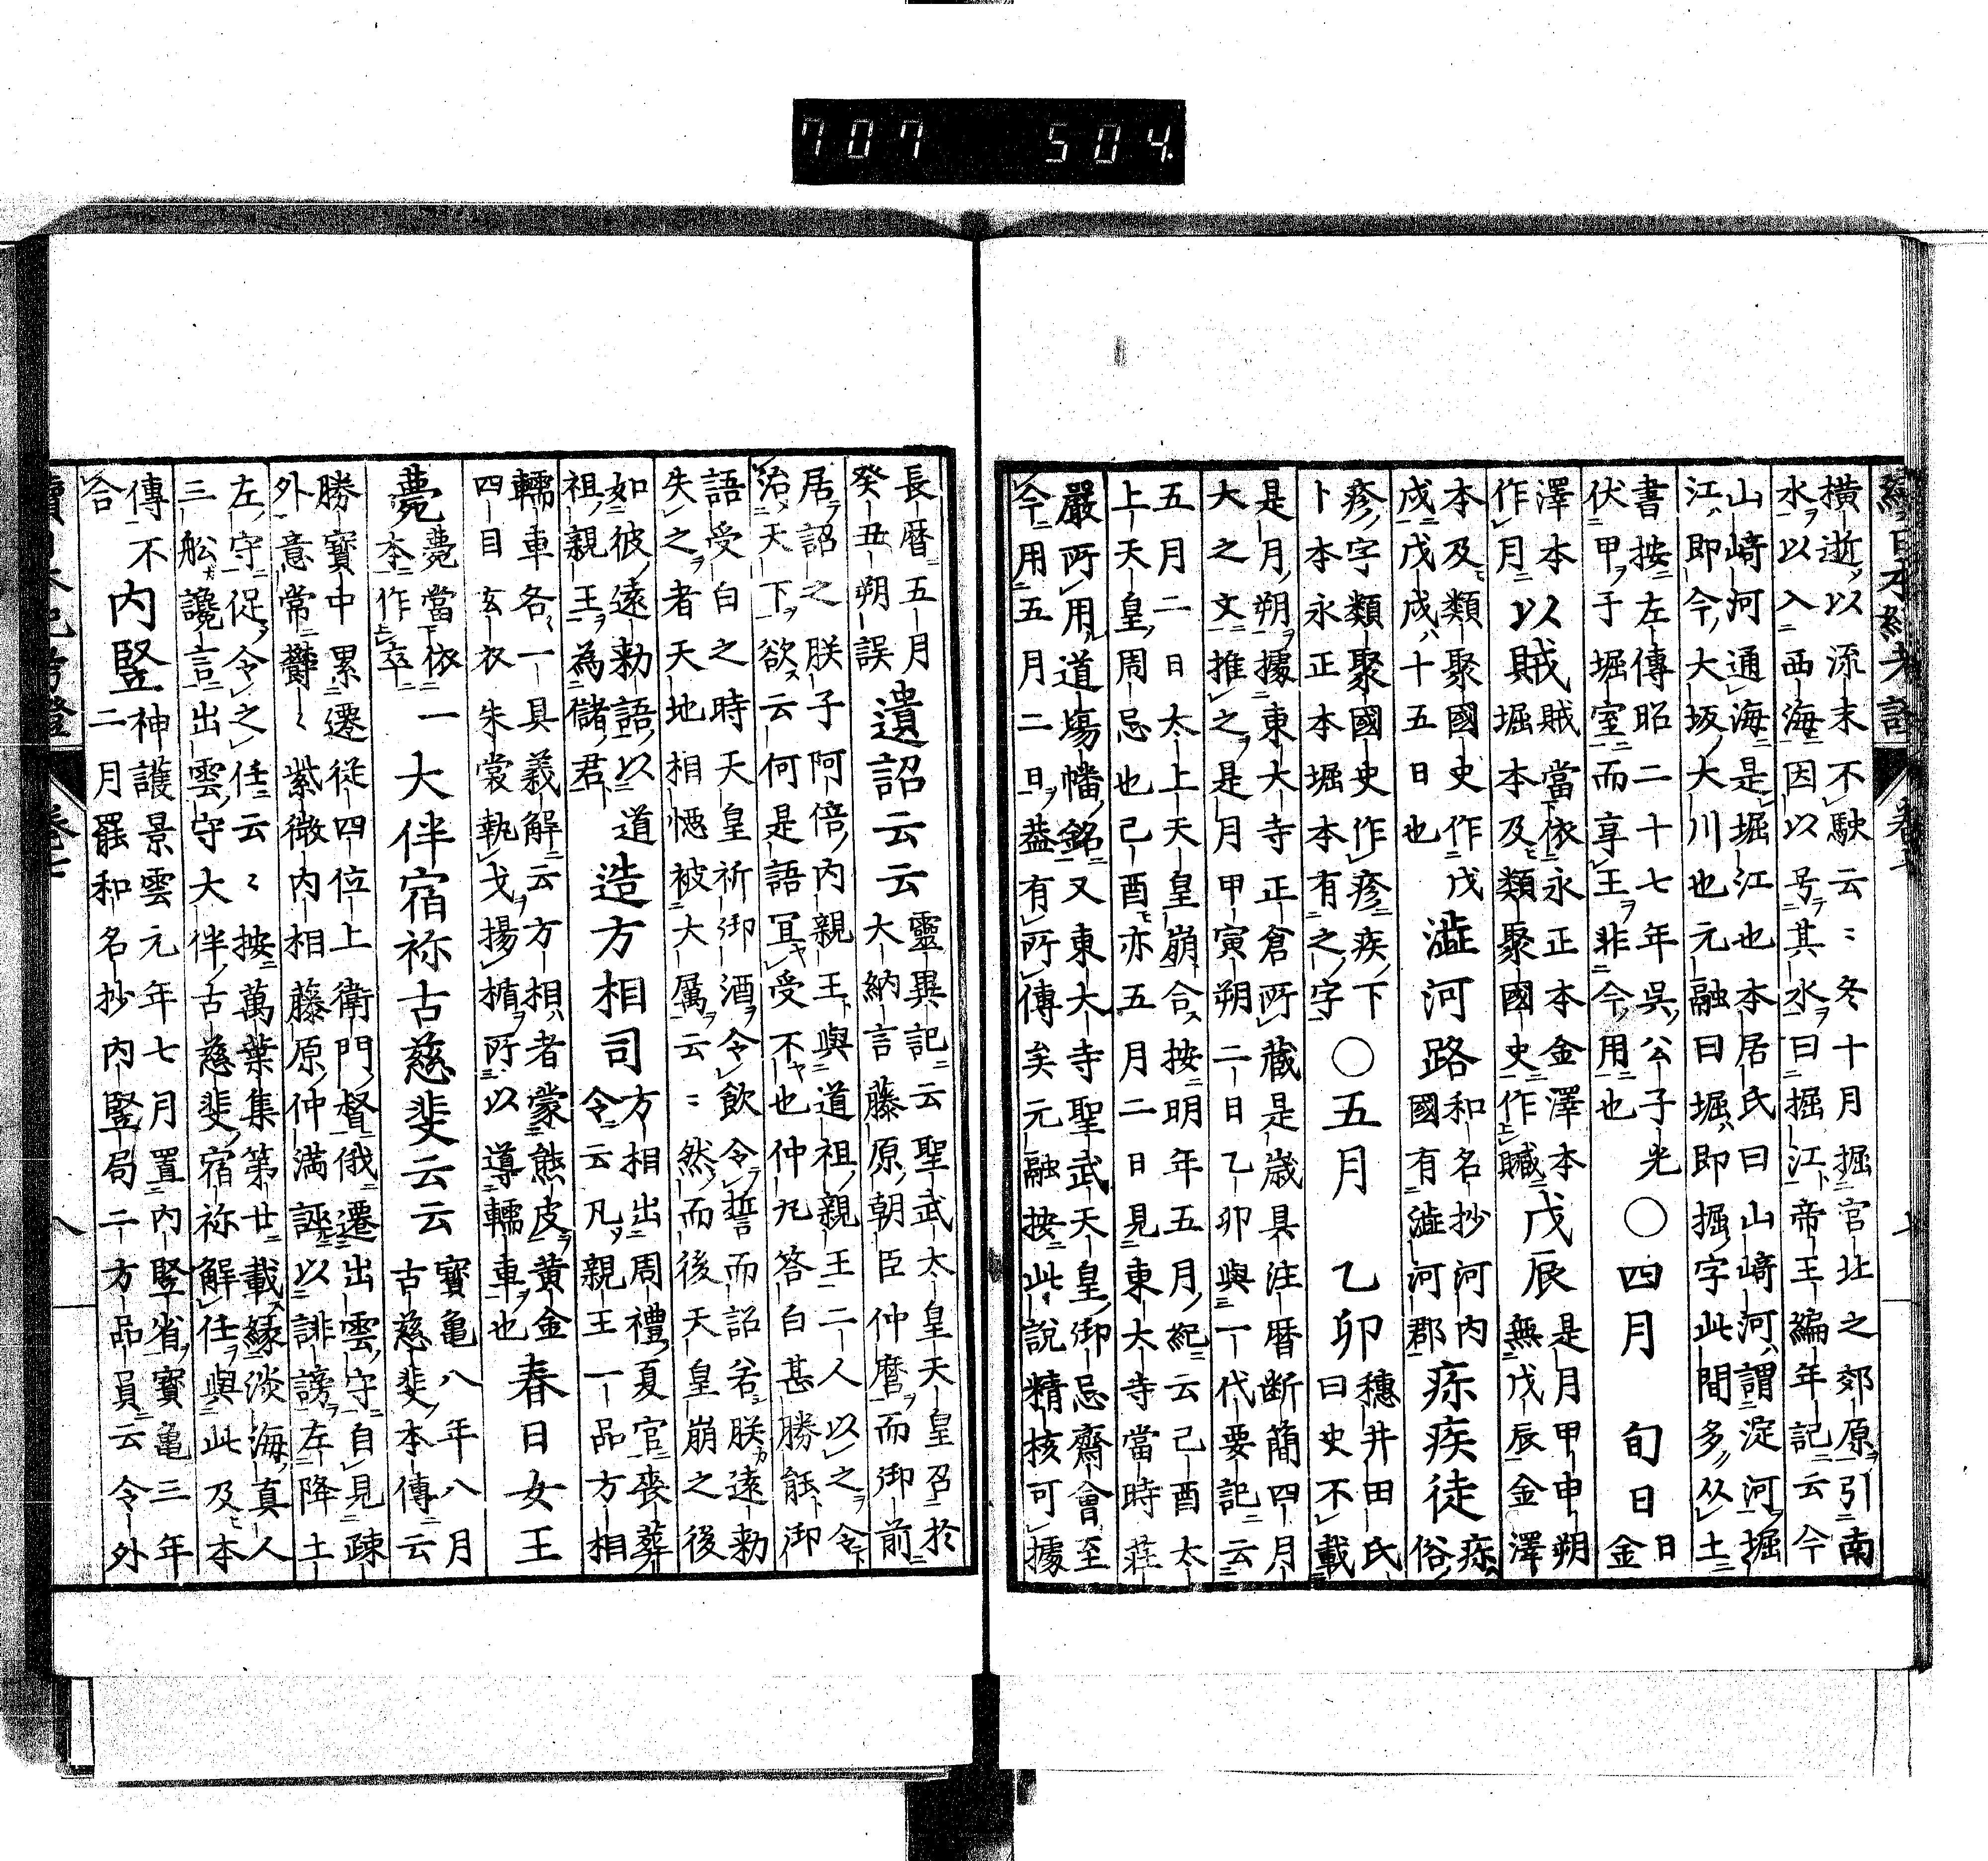 續日本紀考證 卷七
横逝以流末不駛云〻冬十月掘宮北之郊原引南
水以入西海因以号其水曰掘江帝王編年記云今
山﨑河通海是堀江也本居氏曰山﨑河謂淀河堀
江即今大坂大川也元融曰堀即掘字此間多从土
書按左傳昭二十七年呉公子光
伏甲于堀室而享王非今用也
○四月 旬日 日
金
澤本
作月
以賊 賊當依永正本金澤本
堀本及類聚國史作贓
戊辰 是月甲申朔
無戊辰金澤
本及類聚國史作戊
戍戊戍十五日也
澁河路 和名抄河内
國有澁河郡
疢疾徒 疢
俗
疹字類聚國史作疹疾下
卜本永正本堀本有之字
○五月 乙卯 穗井田氏
曰史不載
是月朔據東大寺正倉所蔵是歳具注暦断簡四月
大之文推之是月甲寅朔二日乙卯與一代要記云
五月二日太上天皇崩合按明年五月紀云己酉太
上天皇周忌也己酉亦五月二日見東大寺當時莊
嚴所用道塲幡銘又東大寺聖武天皇御忌齋會至
今用五月二日葢有所傳矣元融按此說精核可據
長暦五月
癸丑朔誤
遺詔云云 靈異記云聖武太皇天皇召於
大納言藤原朝臣仲麿而御前
居詔之朕子阿倍内親王與道祖親王二人以之令
治天下欲云何是語冝受不也仲丸答白甚勝能御
語受白之時天皇祈御酒令飲令誓而詔若朕遠勅
失之者天地相𢛁被大厲云〻然而後天皇崩之後
如彼遠勅語以道
祖親王為儲君
造方相司 方相出周禮夏官喪葬
令云凡親王一品方相
轜車各一具義解云方相者蒙熊皮黄金
四目玄衣朱裳執戈揚楯所以導轜車也
春日女王
薨 薨當依
本作卒
一 大伴宿祢古慈斐云云 寶亀八年八月
古慈斐本傳云
勝寶中累遷従四位上衛門督俄遷出雲守自見疎
外意常鬱〻紫微内相藤原仲満誣以誹謗左降土
左守促令之任云〻按萬葉集第廿載縁淡海真人
三舩讒言出雲守大伴古慈斐宿祢解任與此及本
傳不
合
内竪 神護景雲元年七月置内竪省寶亀三年
二月罷和名抄内竪局二方品員云令外
八